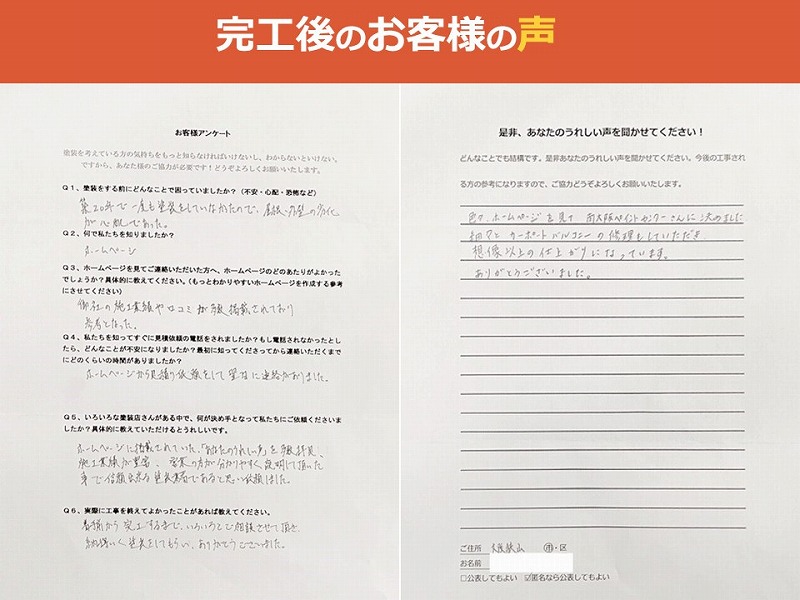 完工後のお客様の声
お客様アンケート
塗装を考えている方の気持ちをもっと知らなければいけないし、わからないといけない。
ですから、あなた様のご協力が必要です！どうぞよろしくお願いいたします。
Q1、塗装をする前にどんなことで困っていましたか？（不安・心配・恐怖など）
築20年で一度も塗装をしていなかたので、屋根・外壁の劣化
が心配であった。
Q2、何で私たちを知りましたか？
ホームページ
Q3、ホームページを見てご連絡いただいた方へ、ホームページのどのあたりがよかった
でしょうか？具体的に教えてください。（もっとわかりやすいホームページを作成する参考
にさせてください）
御社の施工業績や口コミが多数掲載されており
参考となった。
Q4、私たちを知ってすぐに見積依頼の電話をされましたか？もし電話されなかったとし
たら、どんなことが不安になりましたか？最初に知ってくださってから連絡いただくまで
にどのくらいの時間がありましたか？
ホームページから見積り依頼をして翌日に連絡がありました。
Q5、いろいろな塗装店さんがある中で、何が決め手となって私たちにご依頼くださいま
したか？具体的に教えていただけるとうれしいです。
ホームページに掲載されていた、「あなたのうれしい声」を多数拝見、
施工業績が豊富、営業の方が分かりやすく説明して頂いた
事で信頼出来る塗装業者であると思い依頼しました。
Q6、実際に工事を終えてよかったことがあれば教えてください。
着積から完工するまで、いろいろとご相談させて頂き、
納得いく塗装をしてもらい、ありがとうございました。
是非、あなたのうれしい声を聞かせてください！
どんなことでも結構です。是非あなたのうれしい声を聞かせてください。今後の工事され
る方の参考になりますので、ご協力どうぞよろしくお願いいたします。
色々、ホームページを見て 南大阪ペイントセンターさんに決めました
細々と カーポート バルコニーの修理もしていただき
想像以上の仕上がりになっています。
ありがとうございました。
ご住所 大阪狭山 市・区
お名前
□公表してもよい ☑匿名なら公表してもよい